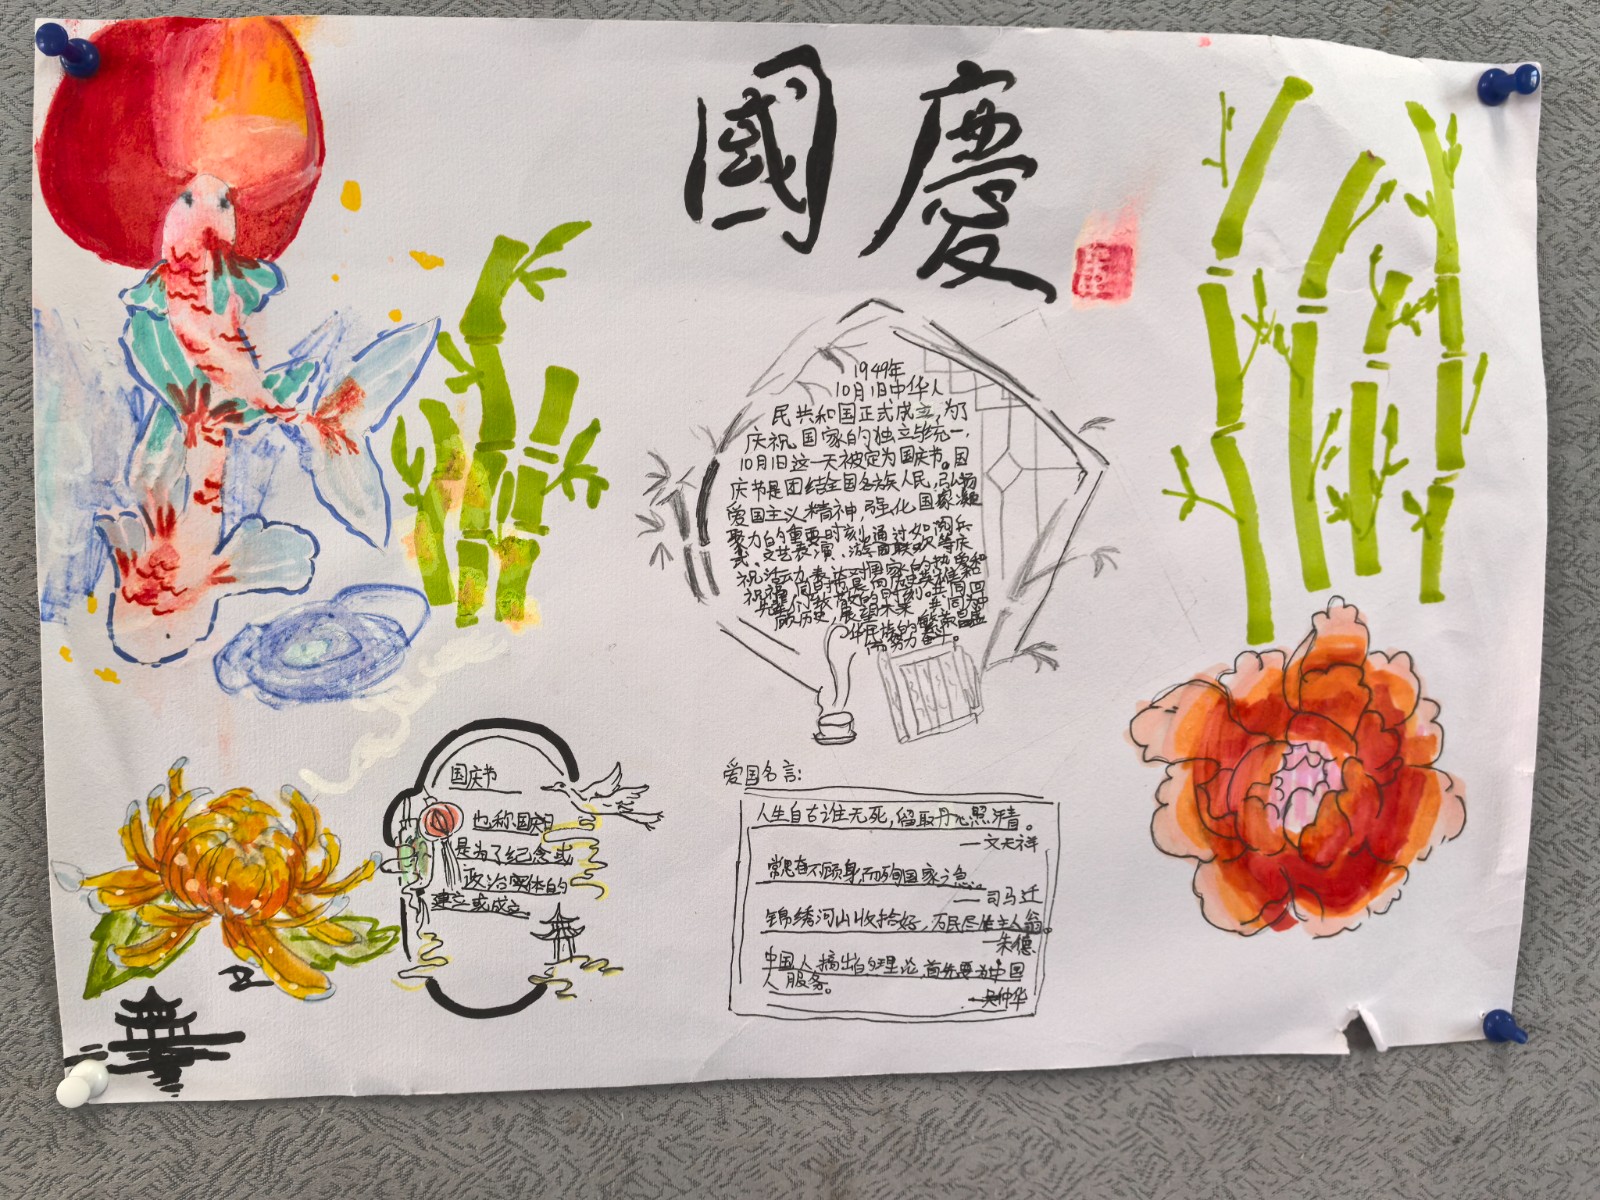 國慶
1949年
10月1日中华人
民共和国正式成立,为了
庆祝国家的独立与统一,
10月1日这一天被定为国庆节。国
庆节是团结全国各族人民,弘扬
爱国主义精神,强化国家凝
聚力的重要时刻,通过如阅兵
式、文艺表演、游园联欢等庆
祝活动,表达对国家的热爱和
祝福,同时
先辈们
顾历史,展望未来,共同为中
华民族的繁荣昌盛
而努力奋斗。
国庆节
也称国庆日
是为了纪念或
政治实体的
建立或成立
爱国名言:
人生自古谁无死,留取丹心照汗青。
—文天祥
常思奋不顾身,而殉国家之急。
—司马迁
锦绣河山收拾好,万民尽作主人翁。
—朱德
中国人搞出的理论,首先要为中国
人服务。
—吴仲华